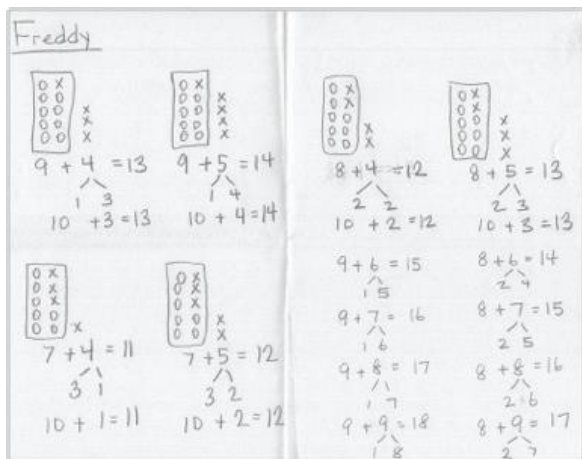 Freddy
9 + 4 = 13
1 3
10 + 3 = 13
9 + 5 = 14
1 4
10 + 4 = 14
7 + 4 = 11
3 1
10 + 1 = 11
7 + 5 = 12
3 2
10 + 2 = 12
8 + 4 = 12
2 2
10 + 2 = 12
8 + 5 = 13
2 3
10 + 3 = 13
9 + 6 = 15
1 5
9 + 7 = 16
1 6
9 + 8 = 17
1 7
9 + 9 = 18
1 8
8 + 6 = 14
2 4
8 + 7 = 15
2 5
8 + 8 = 16
2 6
8 + 9 = 17
2 7